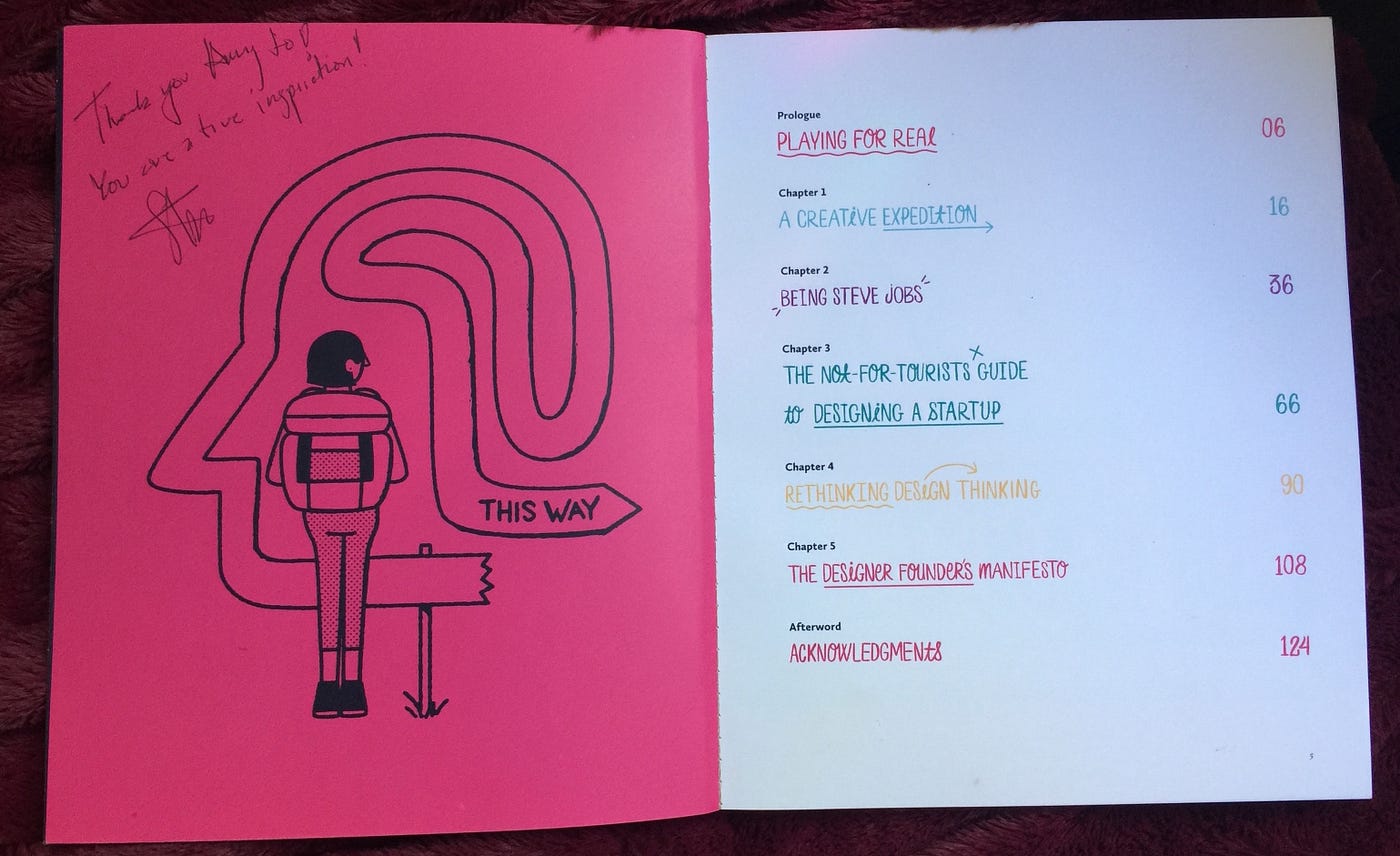 Thank you Amy Jo!
You are a true inspiration!
THIS WAY
Prologue
PLAYING FOR REAL 06
Chapter 1
A CREATIVE EXPEDITION 16
Chapter 2
BEING STEVE JOBS 36
Chapter 3
THE NOT-FOR-TOURISTS GUIDE
to DESIGNING A STARTUP 66
Chapter 4
RETHINKING DESIGN THINKING 90
Chapter 5
THE DESIGNER FOUNDER'S MANIFESTO 108
Afterword
ACKNOWLEDGMENTS 124
5